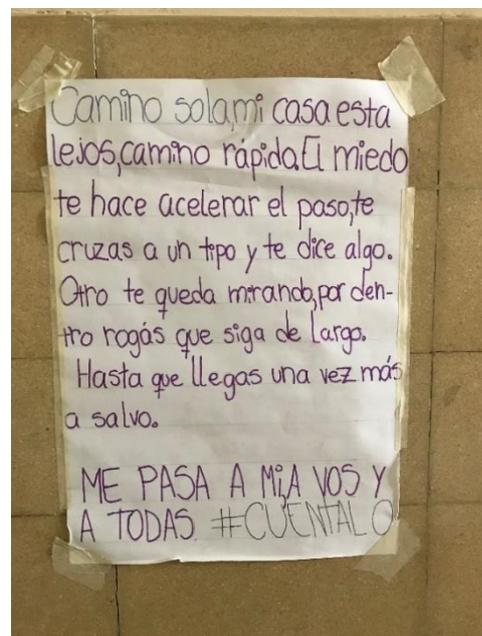 Camino sola, mi casa esta
lejos, camino rápida. El miedo
te hace acelerar el paso, te
cruzas a un tipo y te dice algo.
Otro te queda mirando, por den-
tro rogás que siga de largo.
Hasta que llegas una vez más
a salvo.
ME PASA A Mi, A VOS Y
A TODAS #CUENTALO